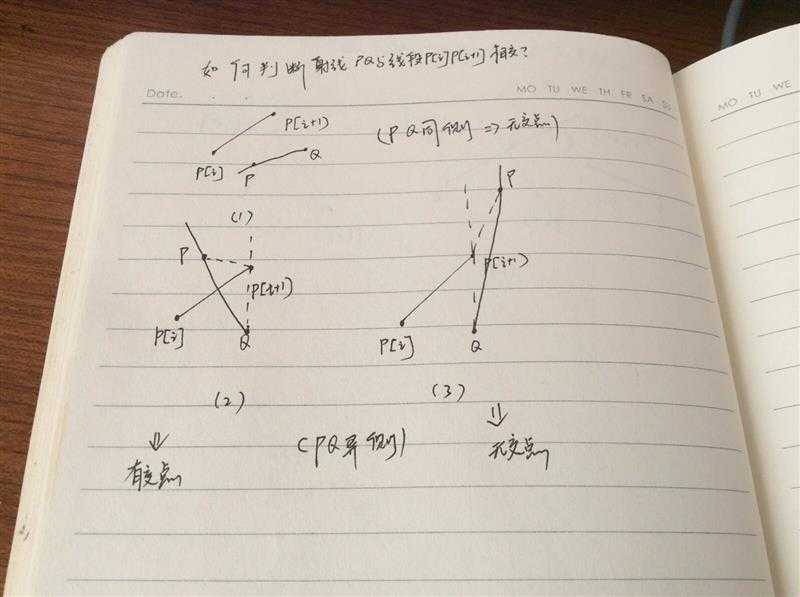 如何判断射线PQ与线段P[i]P[i+1]相交?
Date.
MO TU WE TH FR SA SU
MO TU WE
P[i+1]
(P Q同侧 => 无交点)
P[i]
P
Q
(1)
P
P
P[i+1]
P[i+1]
P[i]
Q
P[i]
Q
(2)
(3)
⇓
(PQ异侧)
⇓
有交点
无交点